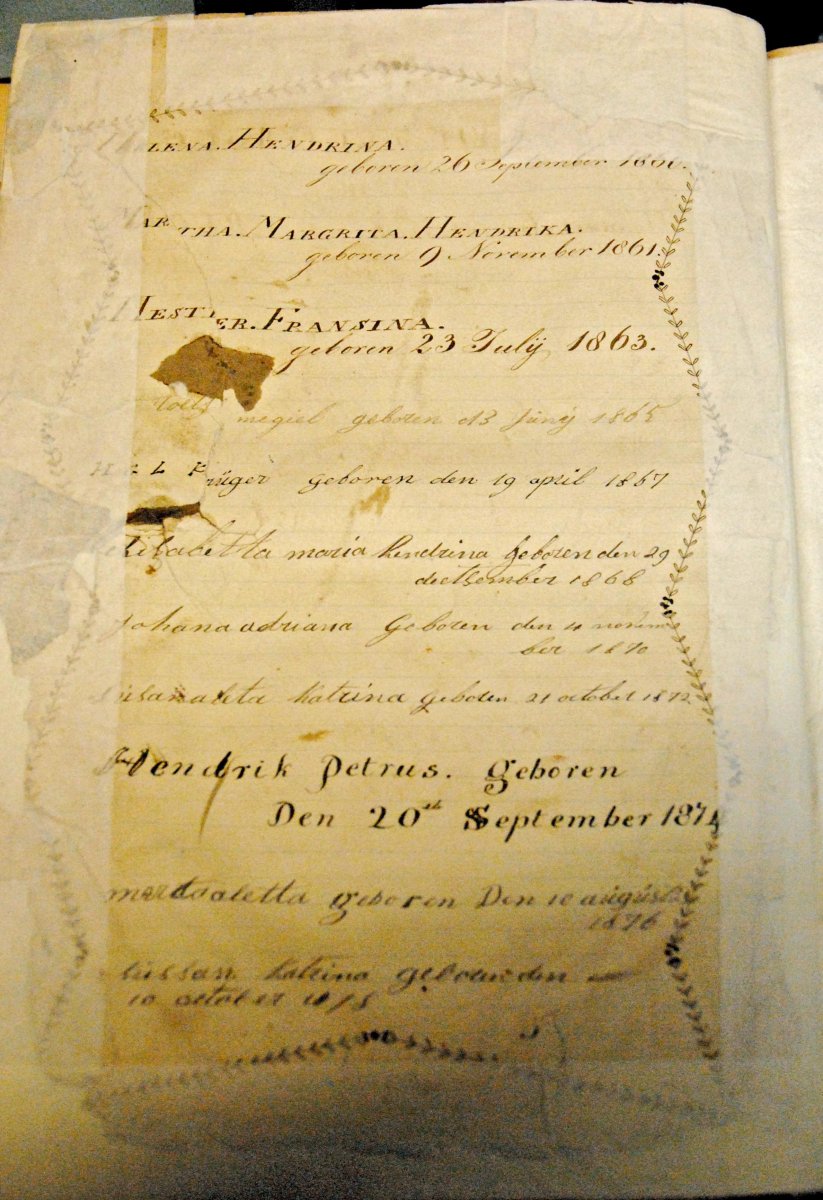 LENA. HENDRINA.
geboren 26 September
MARTHA. MARGRITA. HENDRIKA.
geboren 9 November 1861.
HESTER. FRANSINA.
geboren 23 Julij 1863.
megiel geboren d13 Junij 1865
geboren den 19 april 1867
Elisabetta maria hendrina geboren den 29
deetsember 1868
Johana adriana geboren den 4 novem
ber 1870
katrina geboren 21 october 1872
Hendrik Petrus. geboren
Den 20th September 1874
aletta geboren Den
1876
sussan katrina geboren den
10 october